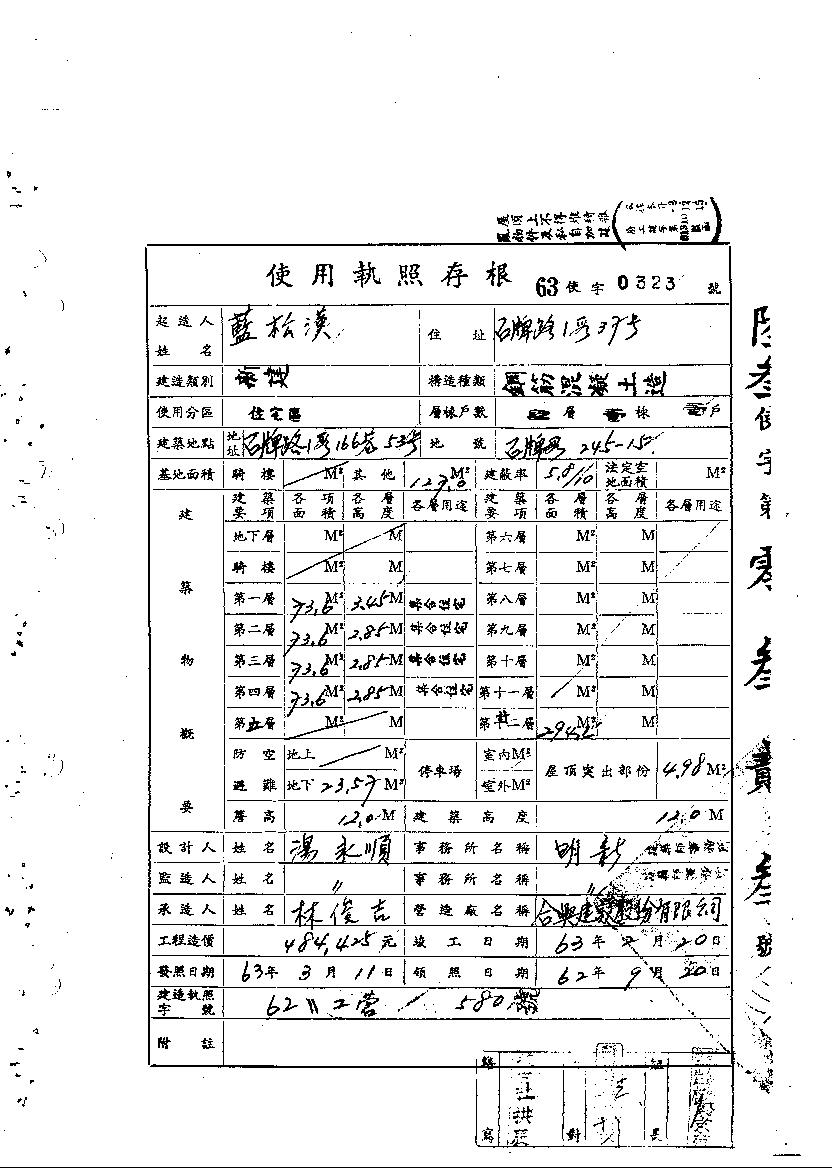 屋頂上不得堆積雜
亂物件及私自加建
使用執照存根 63 使字 0323 號
起造人姓名 藍松漢 住址 石牌路1段37號
建造類別 新建 構造種類 鋼筋混凝土造
使用分區 住宅區 層棟戶數 層 棟 戶
建築地點 地址 石牌路1段166巷53號 地號 石牌段 245-15
基地面積 騎樓 M² 其他 127.0 M² 建蔽率 5.8/10 法定空地面積 M²
建築物概要 建築要項 各項面積 各層高度 各層用途 建築要項 各層面積 各層高度 各層用途
地下層 M² M 第六層 M² M
騎樓 M² M 第七層 M² M
第一層 73.6 M² 3.45 M 集合住宅 第八層 M² M
第二層 73.6 M² 2.85 M 集合住宅 第九層 M² M
第三層 73.6 M² 2.85 M 集合住宅 第十層 M² M
第四層 73.6 M² 2.85 M 集合住宅 第十一層 M² M
第五層 M² M 第二層 M² M
防空避難 地上 M² 停車場 室內 M² 屋頂突出部份 4.98 M²
地下 23.57 M² 室外 M²
簷高 12.0 M 建築高度 12.0 M
設計人 姓名 湯永順 事務所名稱 明新
監造人 姓名 〃 事務所名稱 〃
承造人 姓名 林俊吉 營造廠名稱 合興建設股份有限公司
工程造價 484,425 元 竣工日期 63年2月20日
發照日期 63年3月11日 領照日期 62年9月20日
建造執照字號 62 工營 580號
附註
繕寫 對 組長
陸叁使字第零叁貳叁號